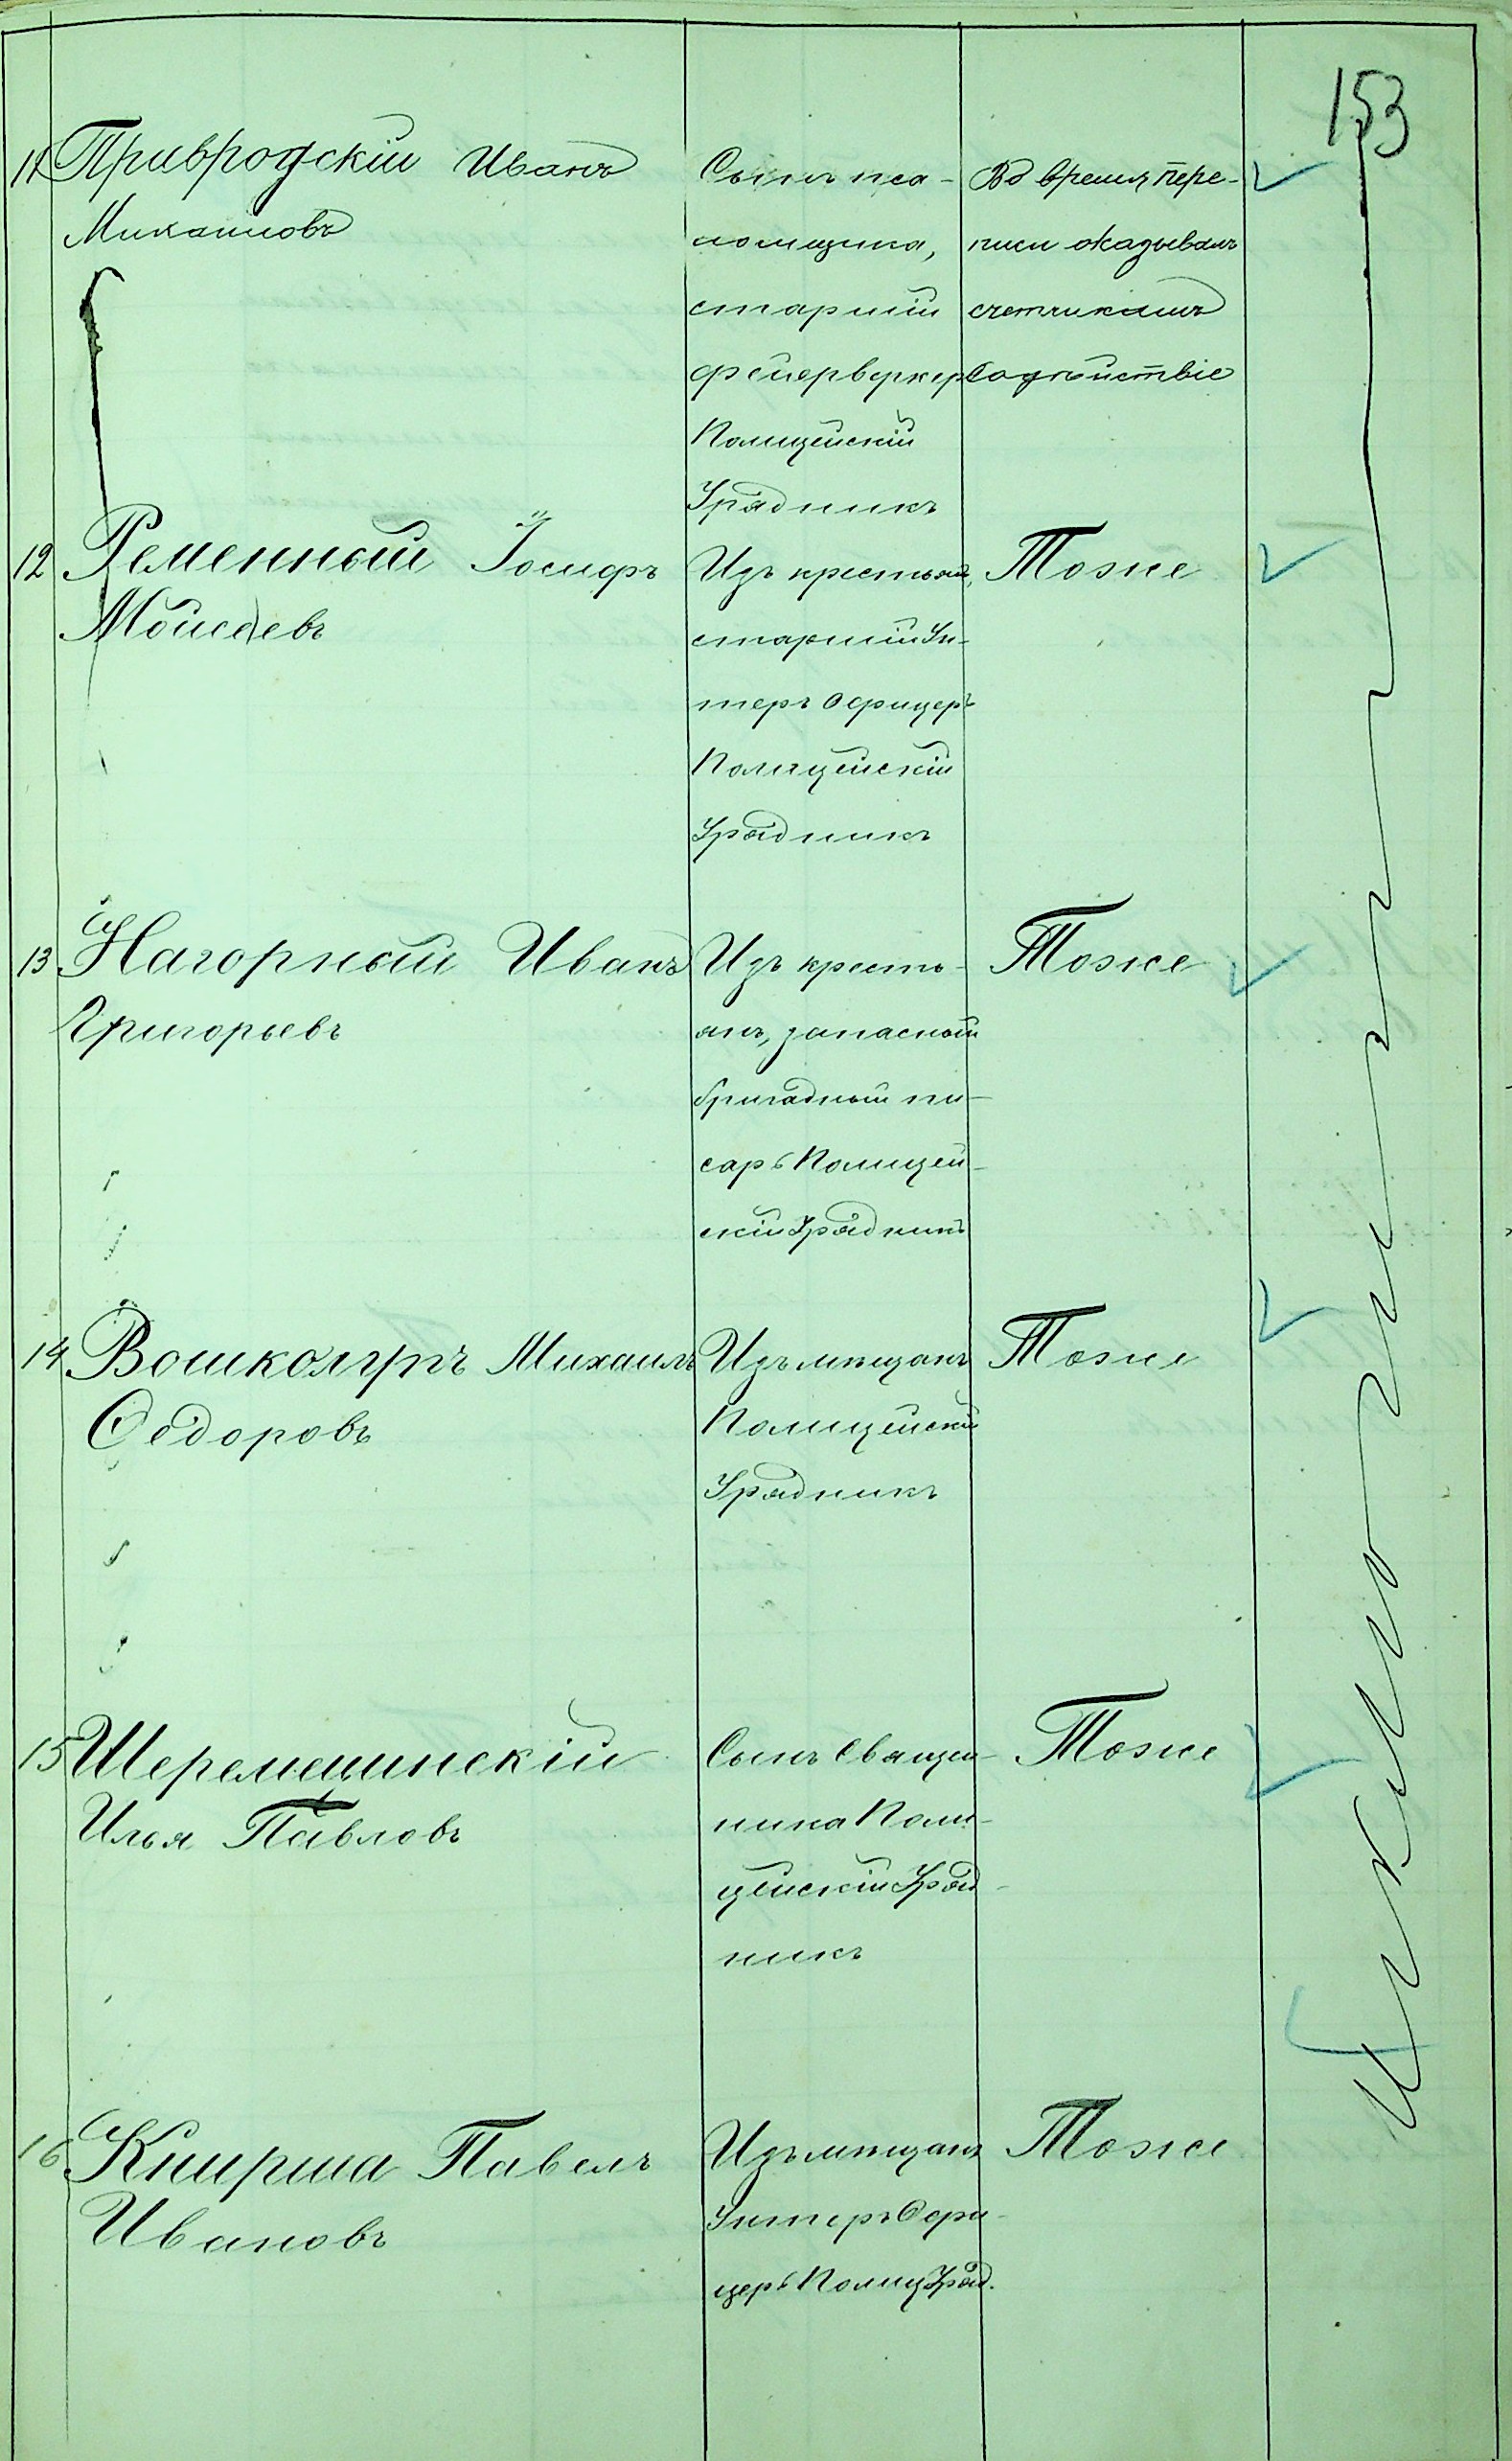 153
11 Привродскій Иванъ
Михаиловъ
Сынъ пса-
ломщика,
старшій
фейерверкеръ
Полицейскій
Урядникъ
Во время пере-
писи оказывалъ
счетчикамъ
содѣйствіе
12 Ременный Іосифъ
Мойсеевъ
Изъ крестьянъ,
старшій Ун-
теръ офицеръ
Полицейскій
Урядникъ
Тоже
13 Нагорный Иванъ
Григорьевъ
Изъ кресть-
янъ, запасный
бригадный пи-
сарь Полицей-
скій Урядникъ
Тоже
14 Михаилъ
Федоровъ
Изъ мѣщанъ
Полицейскій
Урядникъ
Тоже
15 Шеремецинскій
Илья Павловъ
Сынъ Священ-
ника Поли-
цейскій Уряд-
никъ
Тоже
16 Кнырша Павелъ
Ивановъ
Изъ мѣщанъ
Унтеръ Офи-
церъ Полиц Уряд.
Тоже